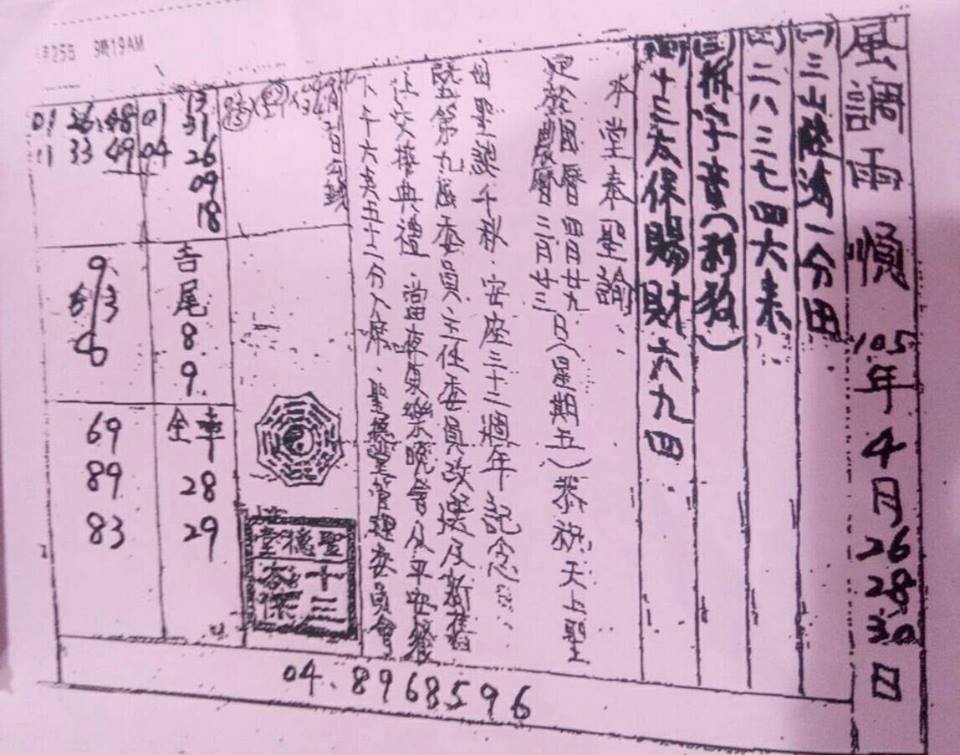 月25日 9時19AM
風調雨順 105年4月26 28 30日
(一)三山陸海一分田
(二)二八三七四六来
(三)拆字章
(四)十三太保賜財六九四
本堂奉聖諭:
定於國曆四月廿九日(星期五)恭祝天上聖
農曆三月廿三
母聖誕千秋.安座三十二週年記念
暨第九屆委員主任委員改選及新舊
任交接典禮.當夜員樂晚會及平安餐
下午六点五十二分入席.聖德堂管理委員會
聖德堂
十三太保
13
01 36 48 01 31
11 33 49 04 26
09
18
吉尾 8 9
9
6
全車 28 29
69
89
83
04.8968596